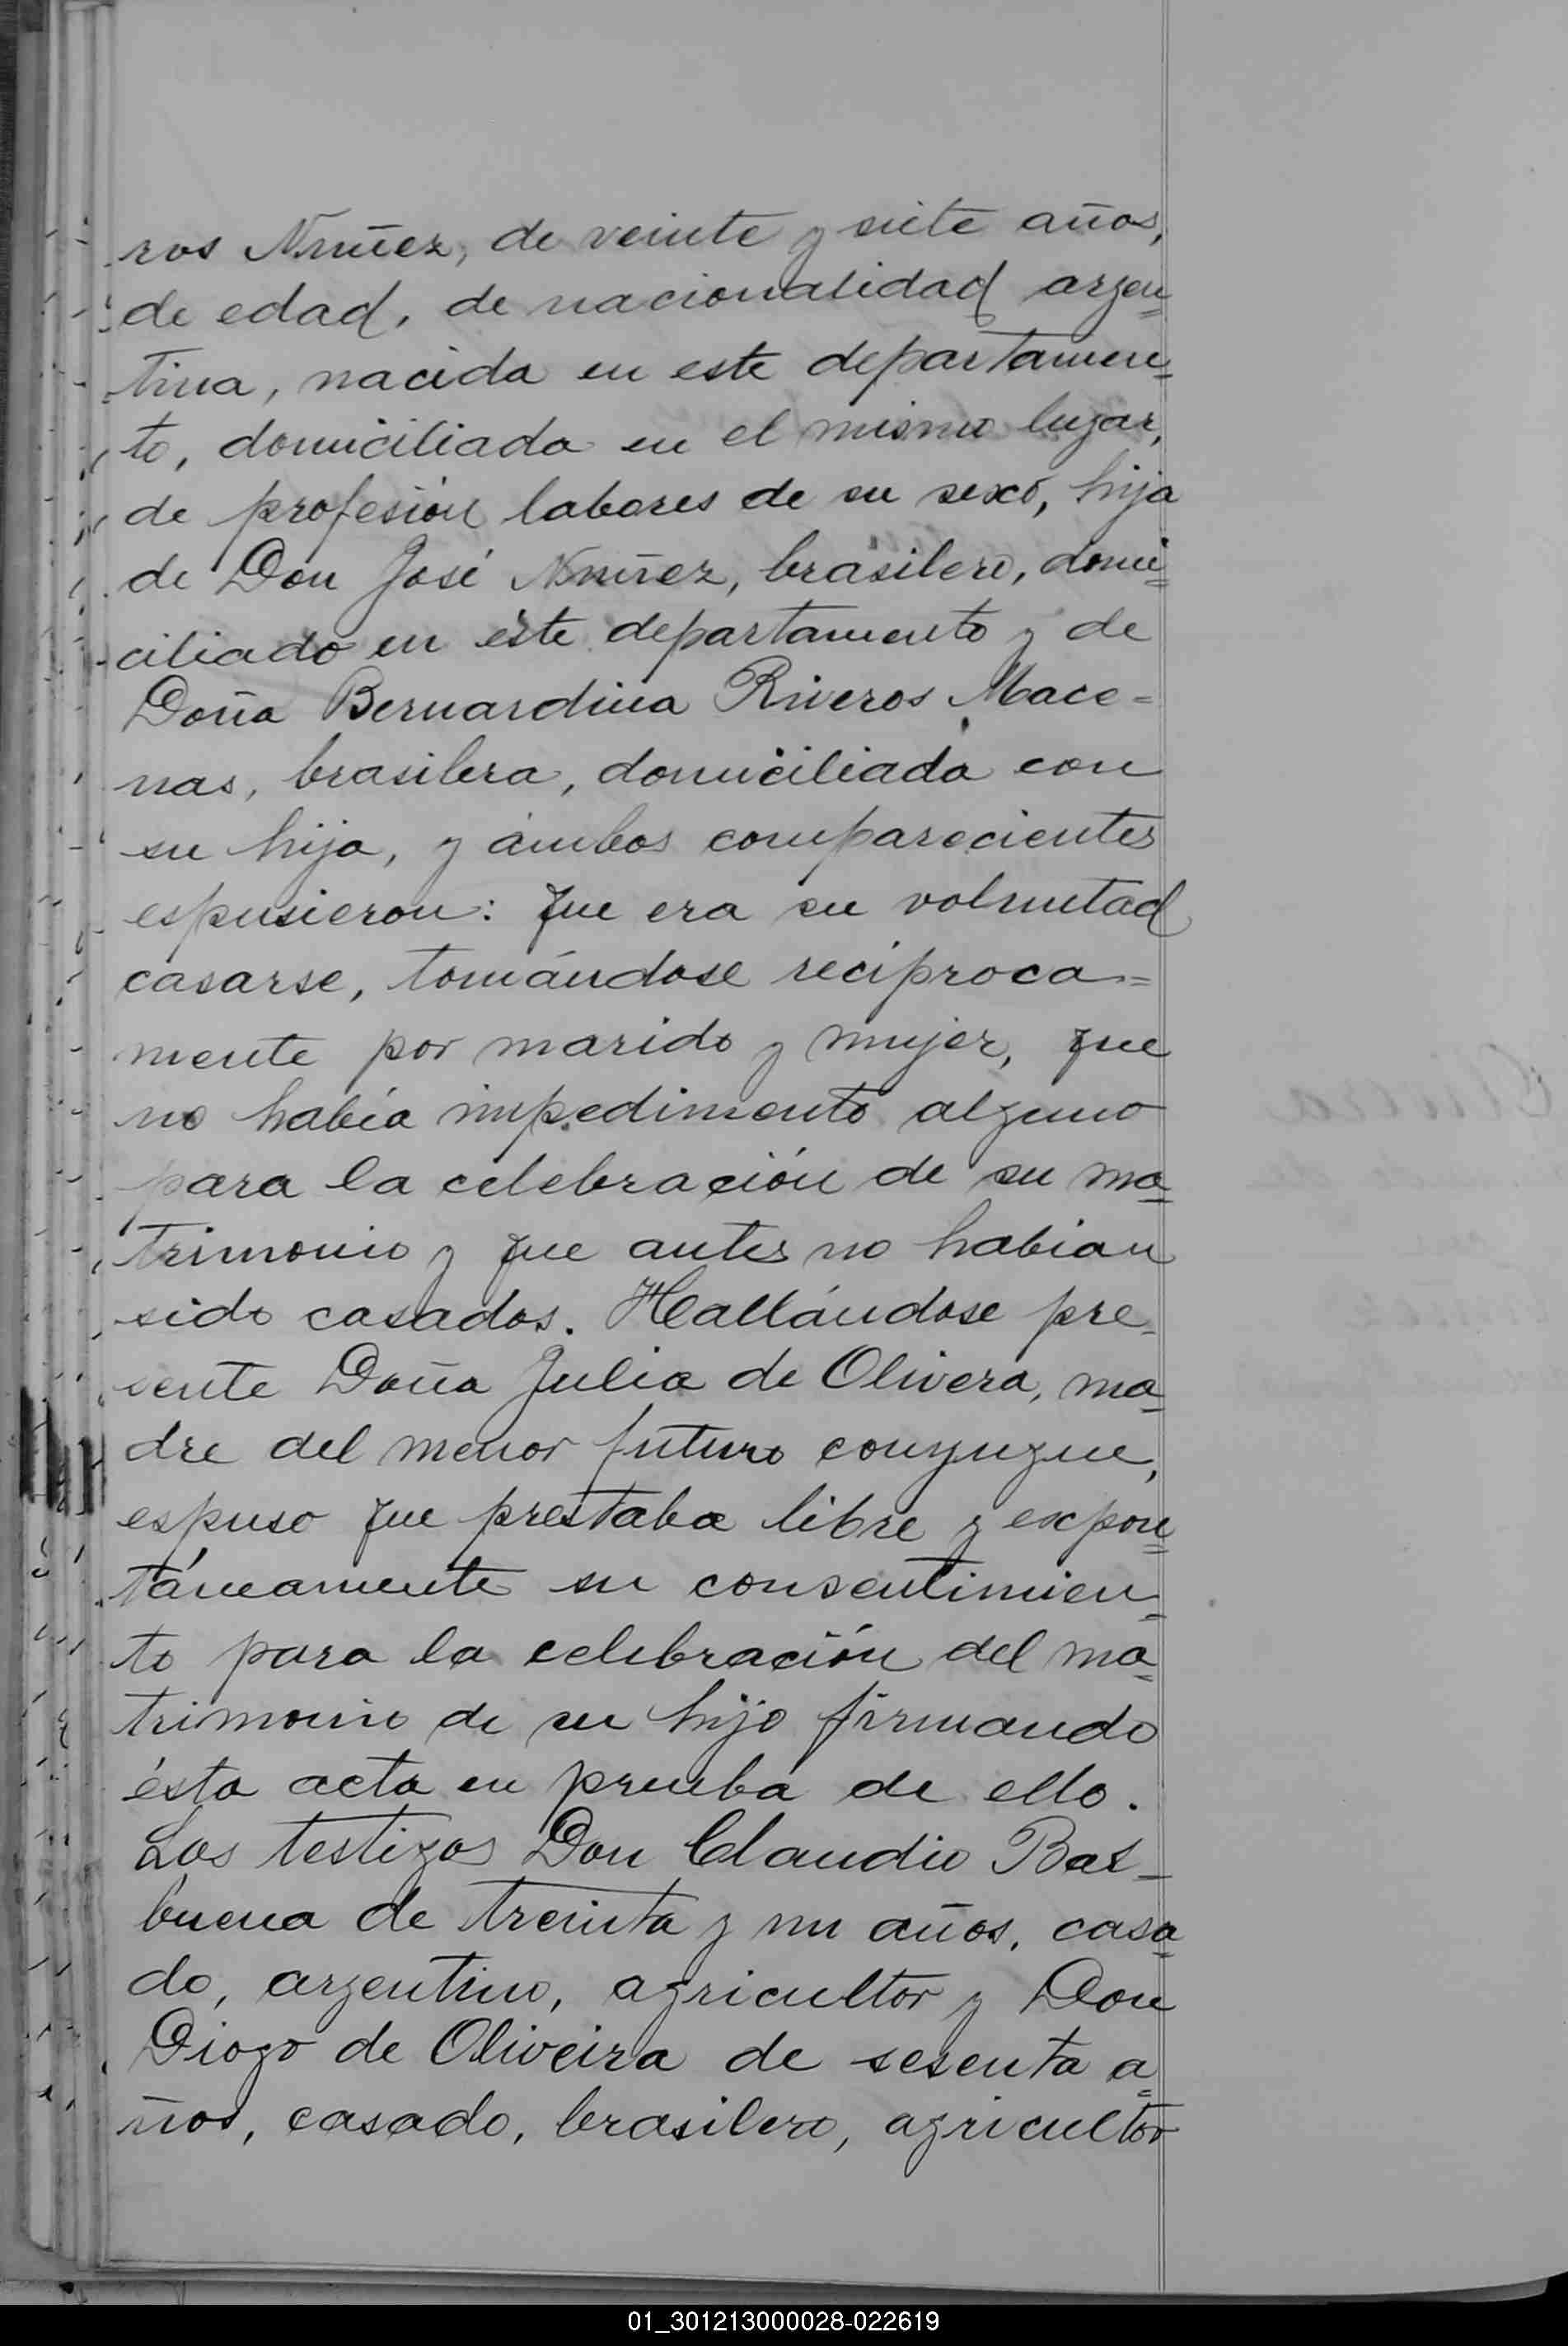 ros Nuñez, de veinte y siete años,
de edad, de nacionalidad argen=
tina, nacida en este departamen=
to, domiciliada en el mismo lugar,
de profesión labores de su sexo, hija
de Don José Nuñez, brasilero, domi=
ciliado en este departamento y de
Doña Bernardina Riveros Mace=
nas, brasilera, domiciliada con
su hija, y ámbos comparecientes
espusieron: que era su voluntad
casarse, tomándose reciproca=
mente por marido y mujer, que
no había impedimento alguno
para la celebración de su ma=
trimonio y que antes no habian
sido casados. Hallándose pre-
sente Doña Julia de Olivera, ma=
dre del menor futuro conyugue,
espuso que prestaba libre y expon=
táneamente su consentimien=
to para la celebración del ma=
trimonio de su hijo firmando
ésta acta en prueba de ello.
Los testigos Don Claudio Bal-
buena de treinta y un años, casa=
do, argentino, agricultor y Don
Diogo de Oliveira de sesenta a=
ños, casado, brasilero, agricultor
01_301213000028-022619